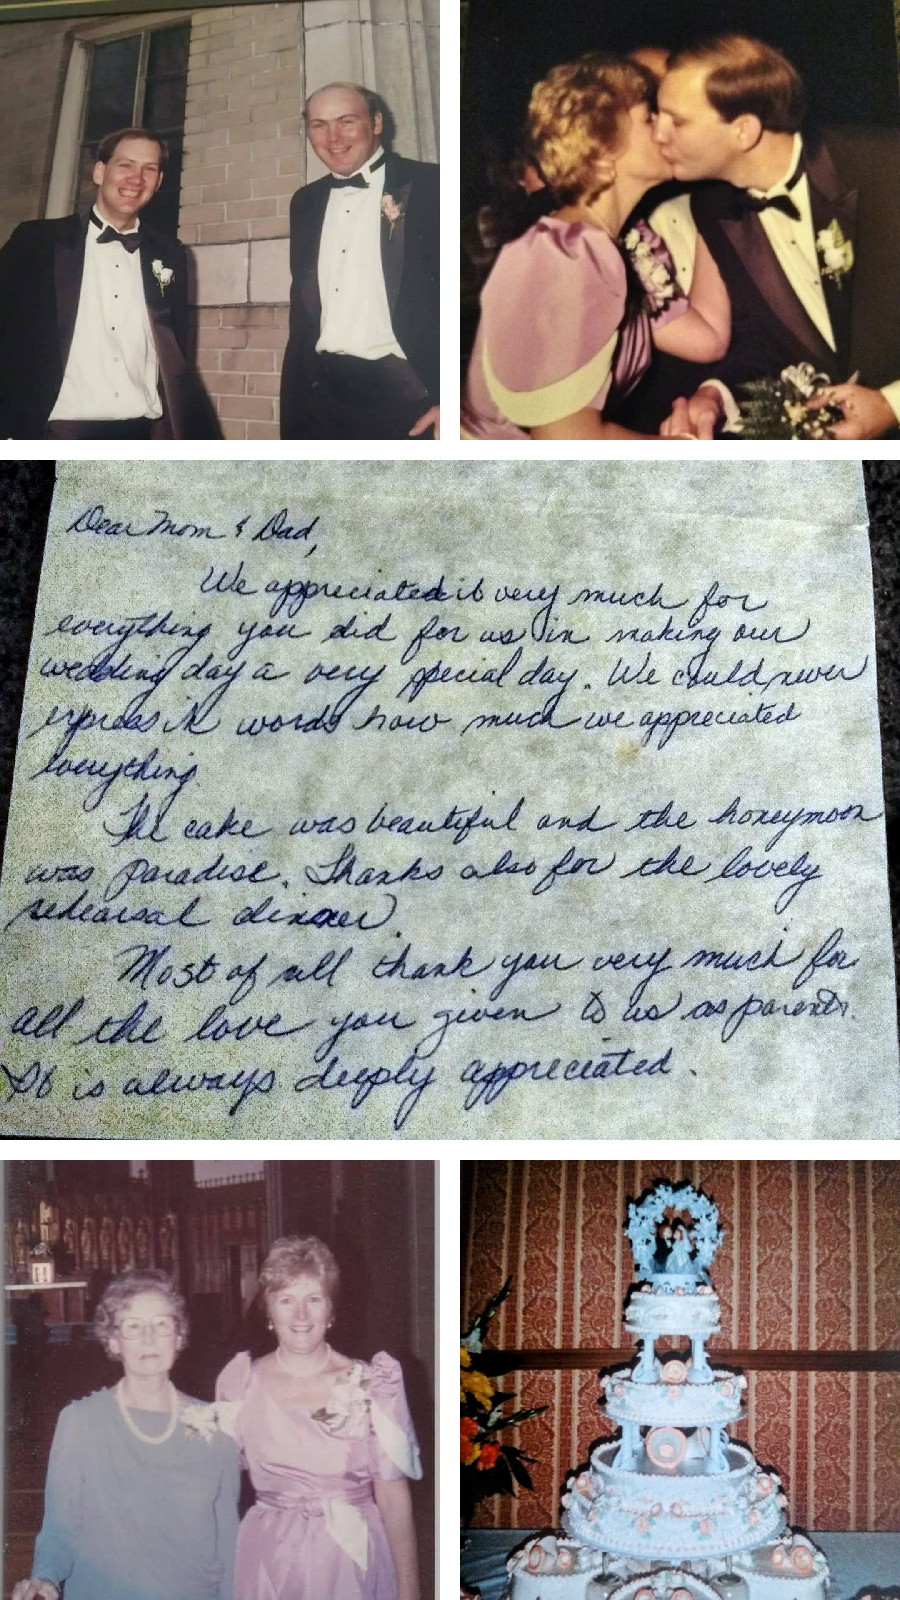 Dear Mom & Dad,
We appreciated it very much for
everything you did for us in making our
wedding day a very special day. We could never
express in words how much we appreciated
everything.
The cake was beautiful and the honeymoon
was paradise. Thanks also for the lovely
rehearsal dinner.
Most of all thank you very much for
all the love you given to us as parents.
It is always deeply appreciated.